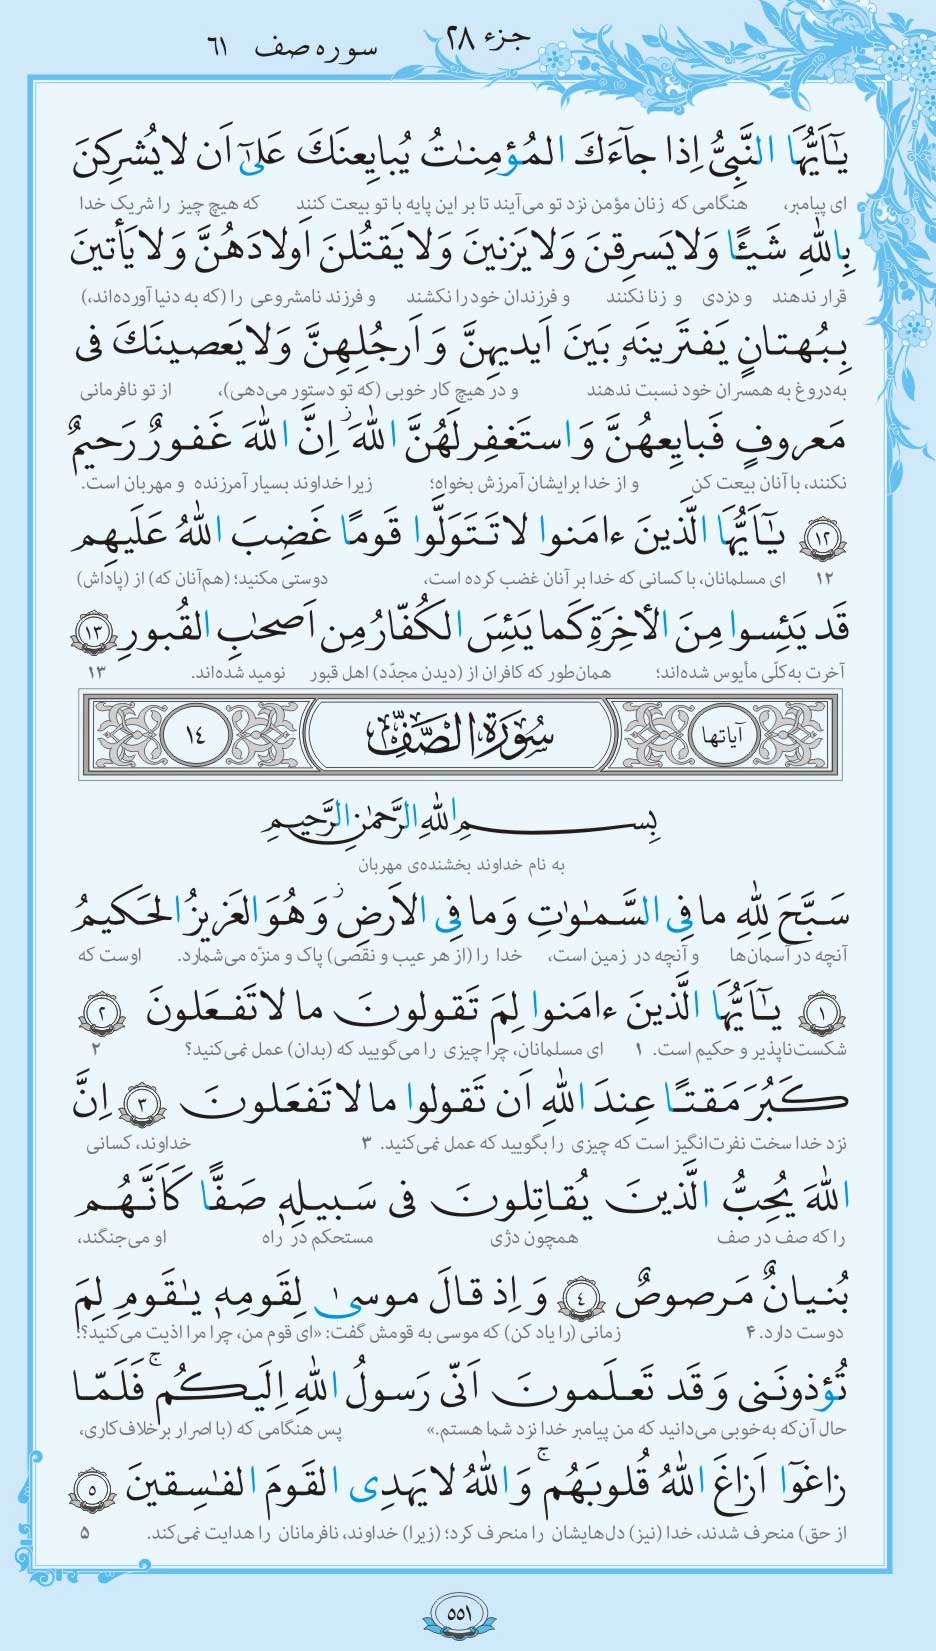 جزء ۲۸
سوره صف ۶۱
يـٰٓأَيُّهَا النَّبِىُّ اِذا جآءَكَ المُؤمِنـٰتُ يُبايِعنَكَ عَلىٰٓ اَن لايُشرِكنَ
ای پیامبر، هنگامی که زنان مؤمن نزد تو می‌آیند تا بر این پایه با تو بیعت کنند که هیچ چیز را شریک خدا
بِاللّٰهِ شَيـًٔا وَلايَسرِقنَ وَلايَزنينَ وَلايَقتُلنَ اَولادَهُنَّ وَلايَأتينَ
قرار ندهند و دزدی و زنا نکنند و فرزندان خود را نکشند و فرزند نامشروعی را (که به دنیا آورده‌اند،)
بِبُهتانٍ يَفتَرينَهٗ بَينَ اَيديهِنَّ وَاَرجُلِهِنَّ وَلايَعصينَكَ فى
به‌دروغ به همسران خود نسبت ندهند و در هیچ کار خوبی (که تو دستور می‌دهی)، از تو نافرمانی
مَعروفٍ فَبايِعهُنَّ وَاستَغفِرلَهُنَّ اللّٰهَ ۖ اِنَّ اللّٰهَ غَفورٌ رَحيمٌ
نکنند، با آنان بیعت کن و از خدا برایشان آمرزش بخواه؛ زیرا خداوند بسیار آمرزنده و مهربان است.
﴿١٢﴾ يـٰٓأَيُّهَا الَّذينَ ءامَنوا لاتَتَوَلَّوا قَومًا غَضِبَ اللّٰهُ عَلَيهِم
۱۲ ای مسلمانان، با کسانی که خدا بر آنان غضب کرده است، دوستی مکنید؛ (هم‌آنان که) از (پاداش)
قَد يَئِسوا مِنَ الأخِرَةِ كَما يَئِسَ الكُفّارُ مِن اَصحـٰبِ القُبورِ ﴿١٣﴾
آخرت به‌کلّی مأیوس شده‌اند؛ همان‌طور که کافران از (دیدن مجدّد) اهل قبور نومید شده‌اند. ۱۳
آیاتها سُورَةُ الصَّفِّ ١٤
بِسمِ اللّٰهِ الرَّحمـٰنِ الرَّحيمِ
به نام خداوند بخشنده‌ی مهربان
سَبَّحَ لِلّٰهِ ما فِى السَّمـٰوٰتِ وَما فِى الاَرضِ ۖ وَهُوَ العَزيزُ الحَكيمُ
آنچه در آسمان‌ها و آنچه در زمین است، خدا را (از هر عیب و نقصی) پاک و منزّه می‌شمارد. اوست که
﴿١﴾ يـٰٓأَيُّهَا الَّذينَ ءامَنوا لِمَ تَقولونَ ما لاتَفعَلونَ ﴿٢﴾
شکست‌ناپذیر و حکیم است. ۱ ای مسلمانان، چرا چیزی را می‌گویید که (بدان) عمل نمی‌کنید؟ ۲
كَبُرَ مَقتًا عِندَ اللّٰهِ اَن تَقولوا ما لاتَفعَلونَ ﴿٣﴾ اِنَّ
نزد خدا سخت نفرت‌انگیز است که چیزی را بگویید که عمل نمی‌کنید. ۳ خداوند، کسانی
اللّٰهَ يُحِبُّ الَّذينَ يُقاتِلونَ فى سَبيلِهٖ صَفًّا كَأَنَّهُم
را که صف در صف همچون دژی مستحکم در راه او می‌جنگند،
بُنيانٌ مَرصوصٌ ﴿٤﴾ وَاِذ قالَ موسىٰ لِقَومِهٖ يـٰقَومِ لِمَ
دوست دارد. ۴ زمانی (را یاد کن) که موسی به قومش گفت: «ای قوم من، چرا مرا اذیت می‌کنید؟!
تُؤذونَنى وَقَد تَعلَمونَ اَنّى رَسولُ اللّٰهِ اِلَيكُم ۚ فَلَمّا
حال آن‌که به‌خوبی می‌دانید که من پیامبر خدا نزد شما هستم.» پس هنگامی که (با اصرار بر خلاف‌کاری،
زاغوٓا اَزاغَ اللّٰهُ قُلوبَهُم ۚ وَاللّٰهُ لايَهدِى القَومَ الفـٰسِقينَ ﴿٥﴾
از حق) منحرف شدند، خدا (نیز) دل‌هایشان را منحرف کرد؛ (زیرا) خداوند، نافرمانان را هدایت نمی‌کند. ۵
۵۵۱